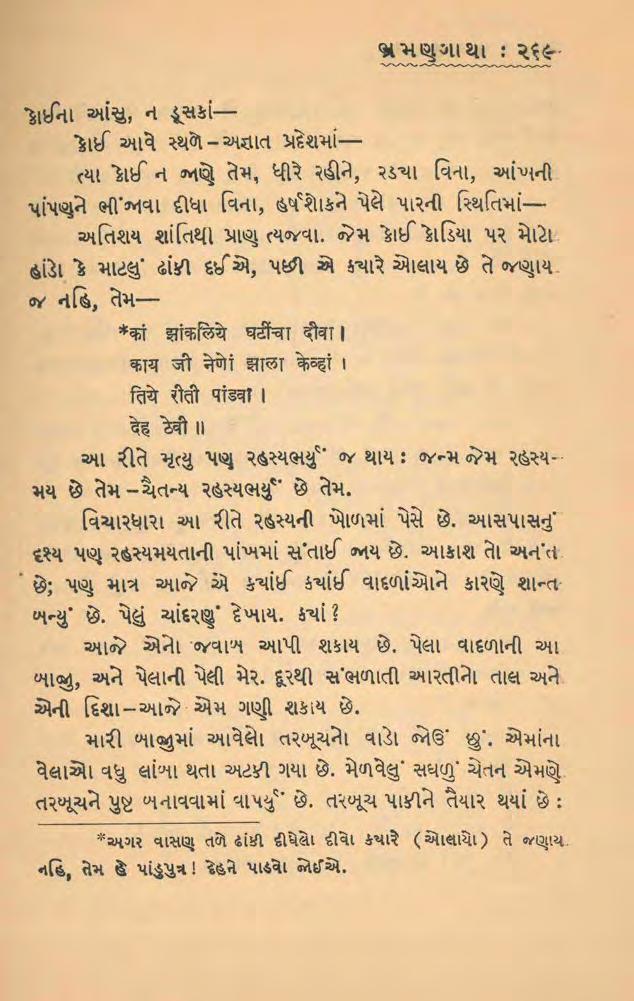 ભ્રમણગાથા : ૨૬૯
કોઈના આંસુ, ન ડૂસકાં—
કોઈ આવે સ્થળે – અજ્ઞાત પ્રદેશમાં—
ત્યા કોઈ ન જાણે તેમ, ધીરે રહીને, રડ્યા વિના, આંખની
પાંપણને ભીંજાવા દીધા વિના, હર્ષશોકને પેલે પારની સ્થિતિમાં—
અતિશય શાંતિથી પ્રાણ ત્યજવા. જેમ કોઈ કોડિયા પર મોટો
હાંડો કે માટલું ઢાંકી દઈએ, પછી એ ક્યારે ઓલાય છે તે જણાય
જ નહિ, તેમ—
*कां झांकलिये घटींचा दीवा।
काय जी नेणें झाला केव्हां ।
तिये रीती पांडवा ।
देह ठेवी ॥
આ રીતે મૃત્યુ પણ રહસ્યભર્યું જ થાય : જન્મ જેમ રહસ્ય-
મય છે તેમ – ચૈતન્ય રહસ્યભર્યું છે તેમ.
વિચારધારા આ રીતે રહસ્યની ખોળમાં પેસે છે. આસપાસનું
દૃશ્ય પણ રહસ્યમયતાની પાંખમાં સંતાઈ જાય છે. આકાશ તો અનંત
છે; પણ માત્ર આજે એ ક્યાંઈ ક્યાંઈ વાદળાંઓને કારણે શાન્ત
બન્યું છે. પેલું ચાંદરણું દેખાય. ક્યાં ?
આજે એનો જવાબ આપી શકાય છે. પેલા વાદળાની આ
બાજુ, અને પેલાની પેલી મેર. દૂરથી સંભળાતી આરતીનો તાલ અને
એની દિશા – આજે એમ ગણી શકાય છે.
મારી બાજુમાં આવેલો તરબૂચનો વાડો જોઉં છું. એમાંના
વેલાઓ વધુ લાંબા થતા અટકી ગયા છે. મેળવેલું સઘળું ચેતન એમણે
તરબૂચને પુષ્ટ બનાવવામાં વાપર્યું છે. તરબૂચ પાકીને તૈયાર થયાં છે :
*અગર વાસણ તળે ઢાંકી દીધેલો દીવો ક્યારે ( ઓલાયો ) તે જણાય
નહિ, તેમ હે પાંડુપુત્ર ! દેહને પાડવો જોઈએ.